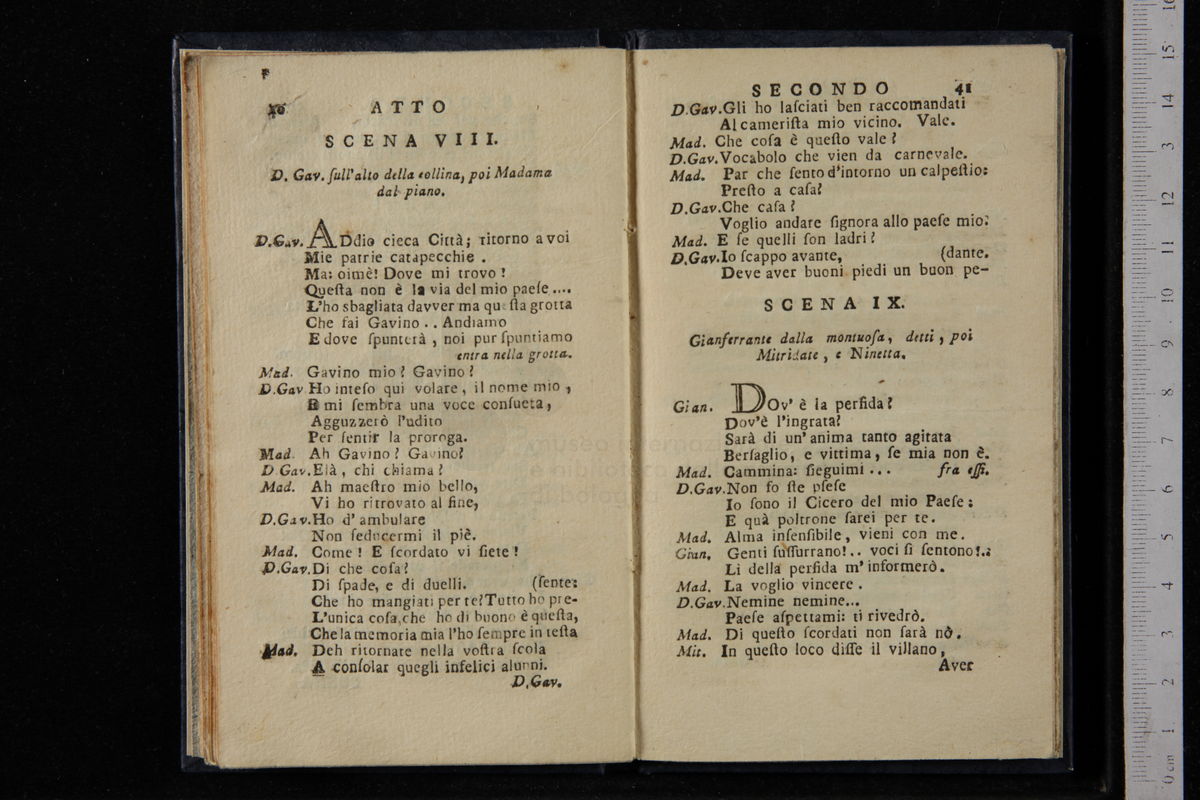 40 ATTO
SCENA VIII.
D. Gav. ſull'alto della collina, poi Madama
dal piano.
D.Gav. ADdio cieca Città; ritorno a voi
Mie patrie catapecchie .
Ma: oimè! Dove mi trovo !
Queſta non è la via del mio paeſe ....
L'ho sbagliata davver ma queſta grotta
Che fai Gavino . . Andiamo
E dove ſpunterà , noi pur ſpuntiamo
entra nella grotta.
Mad. Gavino mio ? Gavino ?
D.Gav Ho inteſo qui volare , il nome mio ,
E mi ſembra una voce conſueta,
Agguzzerò l'udito
Per ſentir la proroga.
Mad. Ah Gavino ? Gavino?
D.Gav. Elà , chi chiama ?
Mad. Ah maeſtro mio bello,
Vi ho ritrovato al fine,
D.Gav. Ho d' ambulare
Non ſeducermi il piè.
Mad. Come ! E ſcordato vi ſiete !
D.Gav. Di che coſa?
Di ſpade, e di duelli. (ſente:
Che ho mangiati per te?Tutto ho pre-
L'unica coſa,che ho di buono è queſta,
Che la memoria mia l'ho ſempre in teſta
Mad. Deh ritornate nella voſtra ſcola
A conſolar quegli infelici alunni.
D.Gav.
SECONDO 41
D.Gav. Gli ho laſciati ben raccomandati
Al cameriſta mio vicino. Vale.
Mad. Che coſa è queſto vale ?
D.Gav. Vocabolo che vien da carnevale.
Mad. Par che ſento d'intorno un calpeſtio:
Preſto a caſa?
D.Gav. Che caſa ?
Voglio andare ſignora allo paeſe mio.
Mad. E ſe quelli ſon ladri ?
D.Gav. Io ſcappo avante, (dante.
Deve aver buoni piedi un buon pe-
SCENA IX.
Gianferrante dalla montuoſa, detti , poi
Mitridate , e Ninetta.
Gian. DOv' è la perfida?
Dov'è l'ingrata?
Sarà di un' anima tanto agitata
Berſaglio, e vittima, ſe mia non è.
Mad. Cammina: ſieguimi ... fra eſſi.
D.Gav. Non ſo ſte pſeſe
Io ſono il Cicero del mio Paeſe ;
E quà poltrone ſarei per te .
Mad. Alma inſenſibile , vieni con me.
Gian. Genti ſuſſurrano!.. voci ſi ſentono!..
Li della perfida m' informerò.
Mad. La voglio vincere .
D.Gav. Nemine nemine...
Paeſe aſpettami: ti rivedrò.
Mad. Di queſto ſcordati non ſarà nò.
Mit. In queſto loco diſſe il villano ,
Aver
museo internaz
e biblioteca
di bologna
16
15
14
3
12
11
10
9
8
7
6
5
4
3
2
1
0 cm